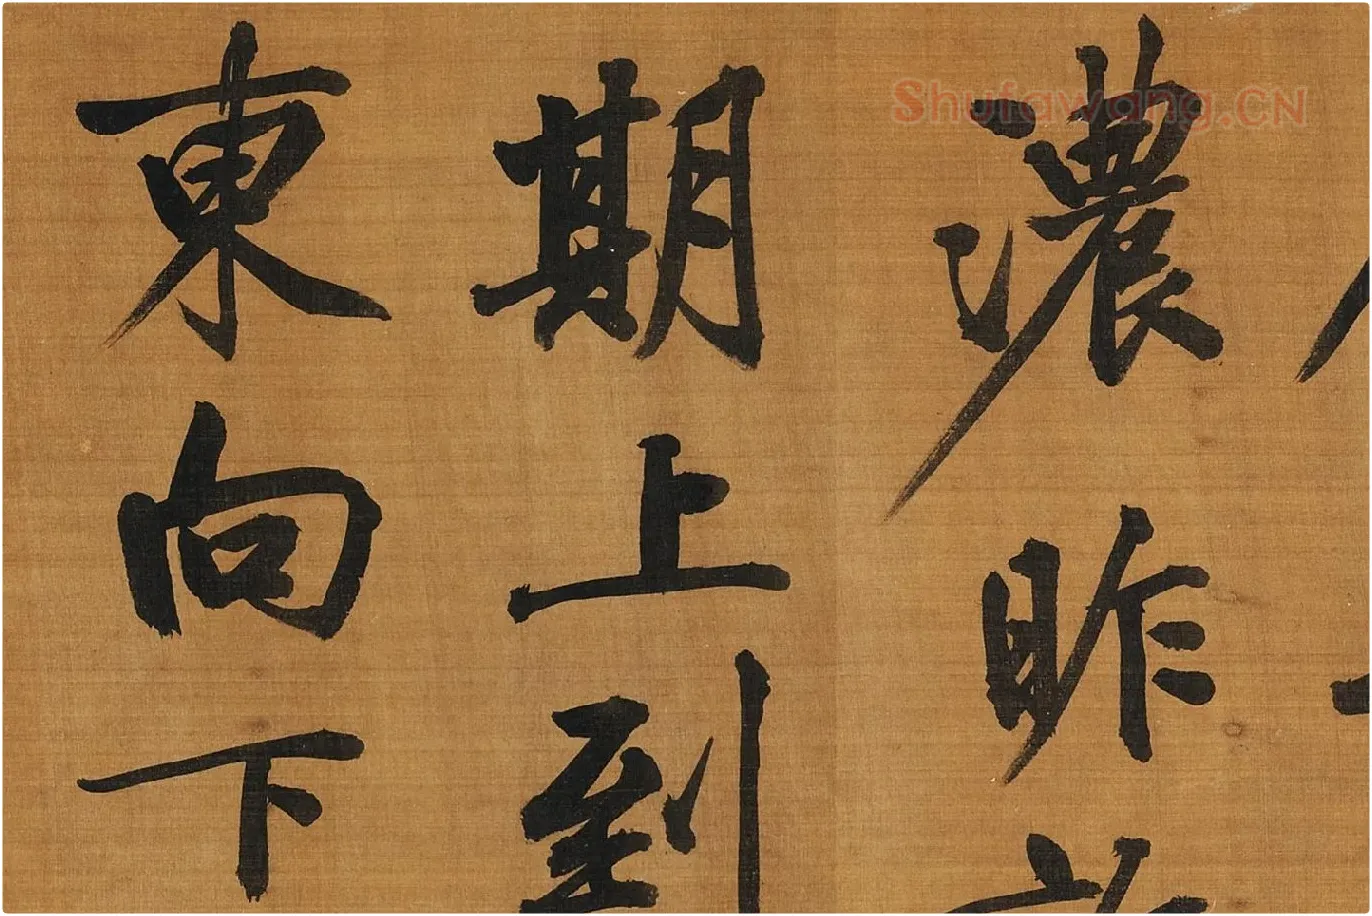 濃昨
期上到
東向下
Shufawang.CN